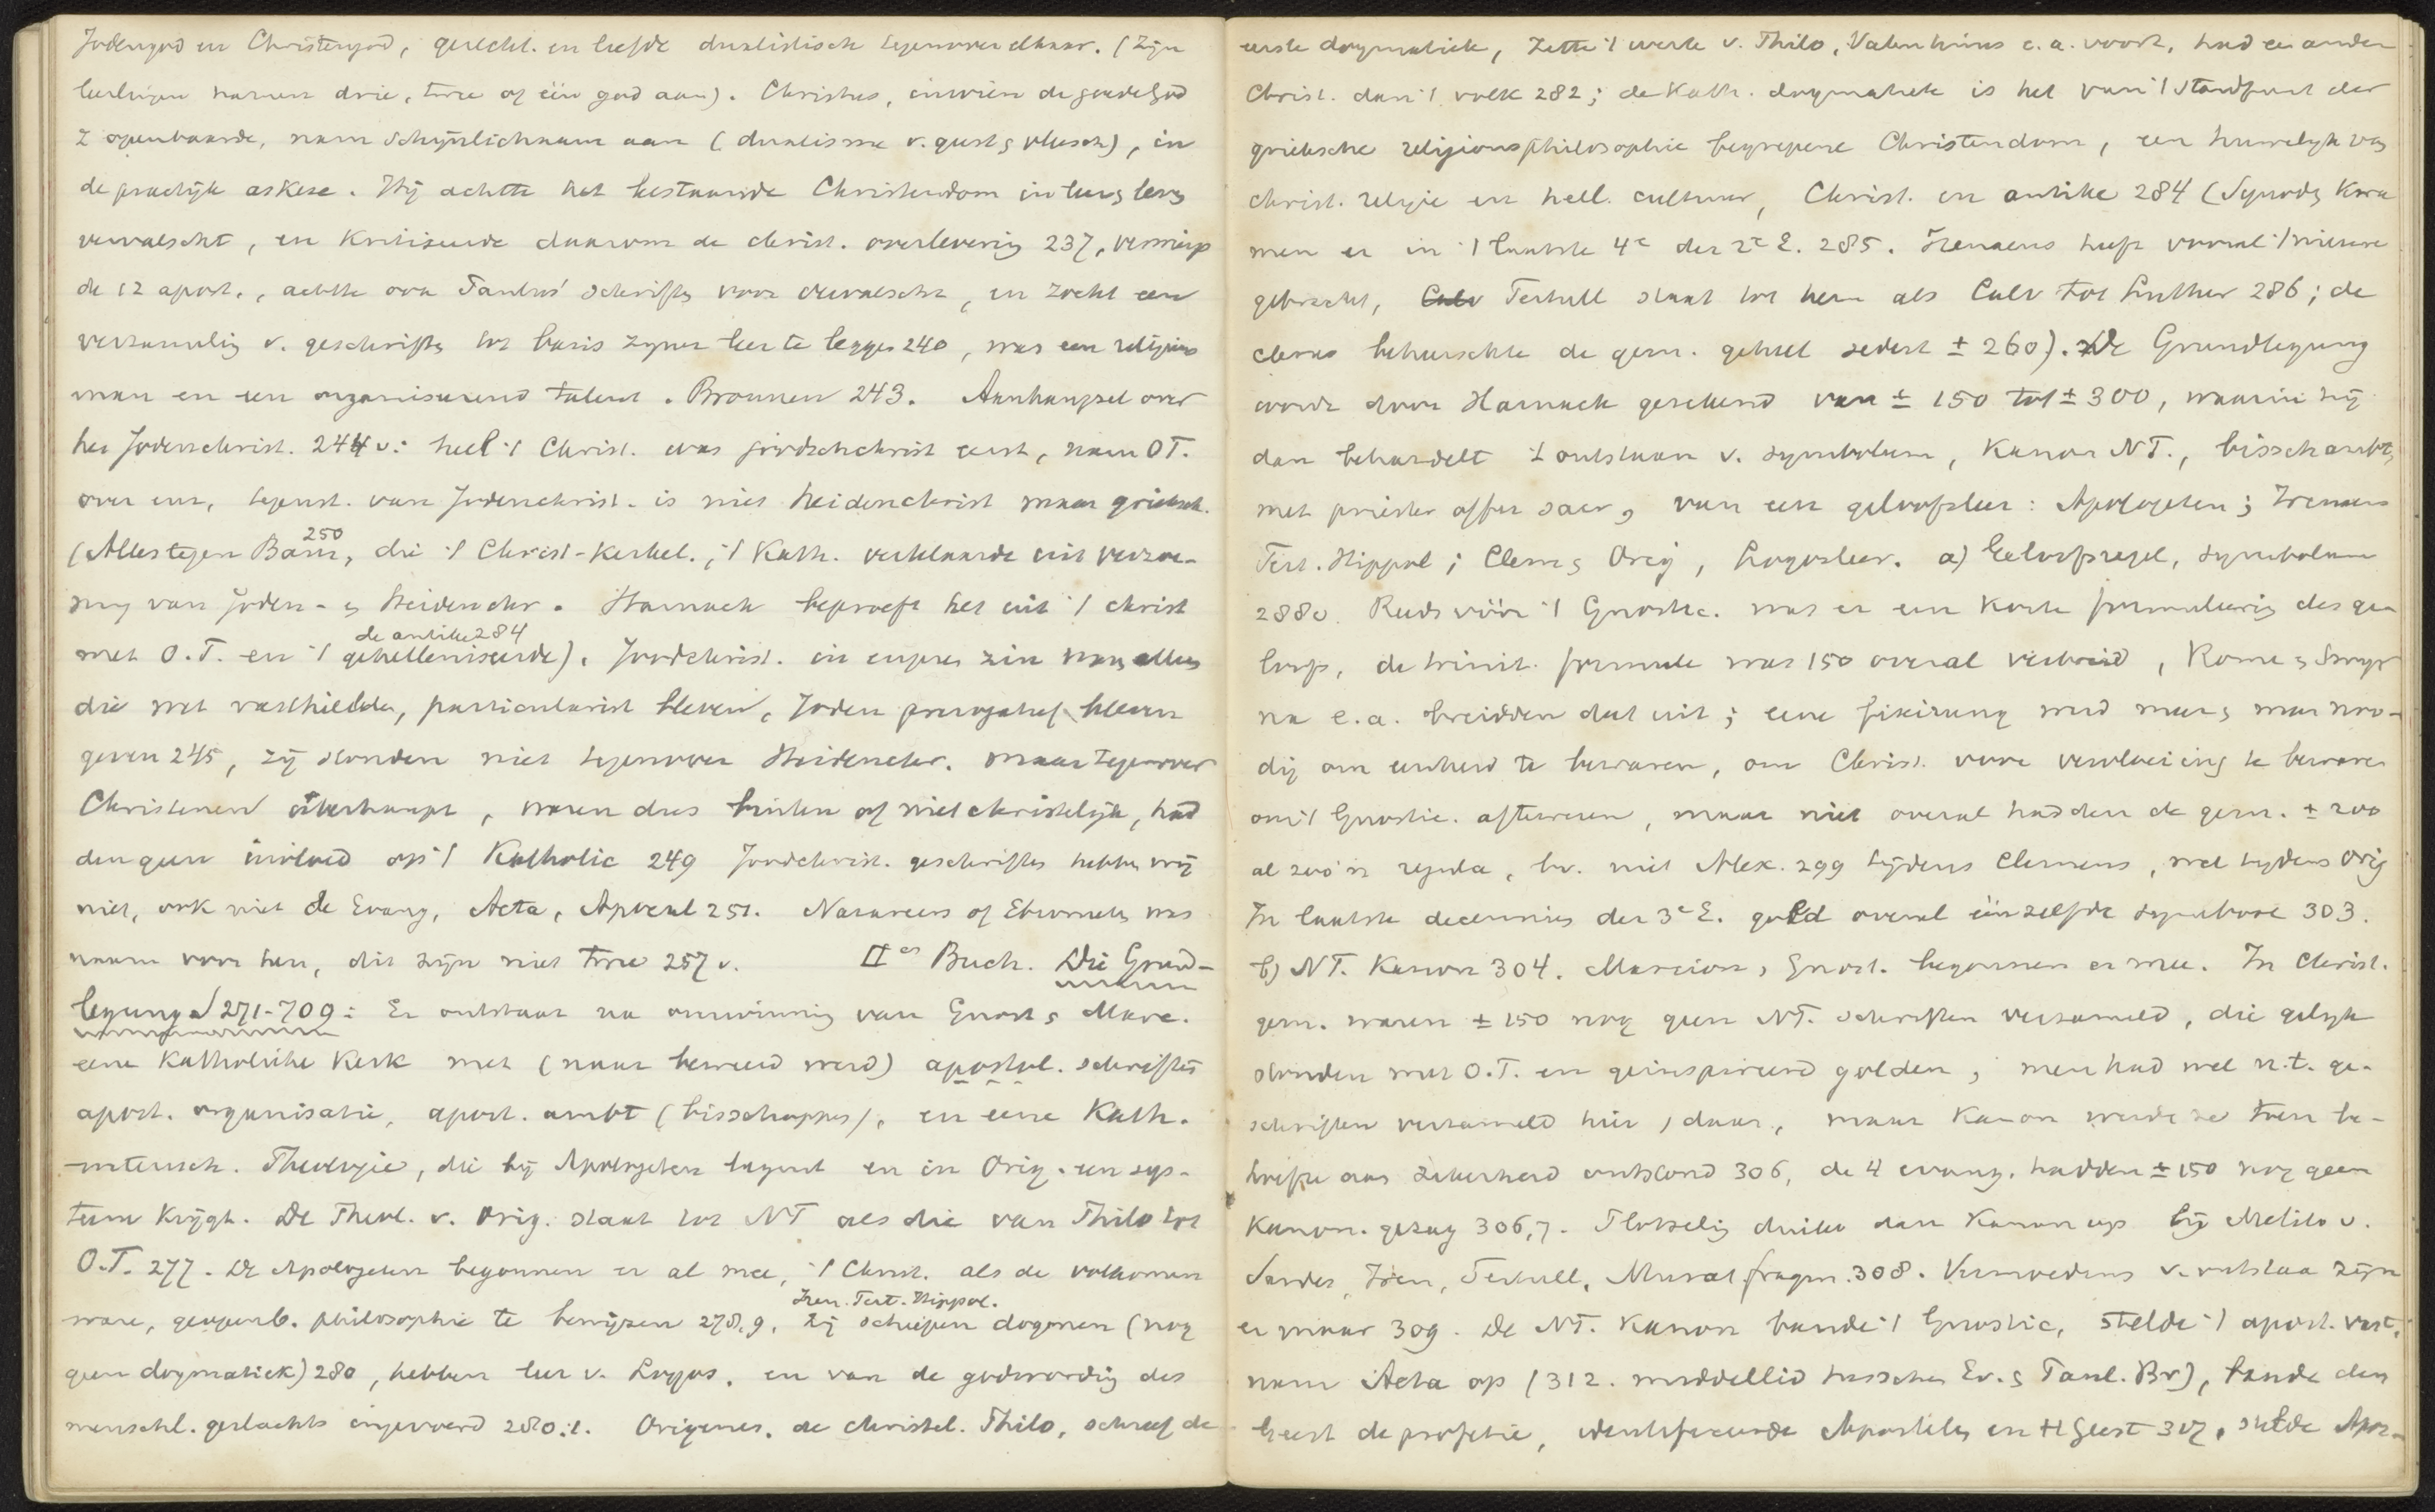 Jodengod en Christengod, gerecht. en liefde dualistisch tegenover elkaar. (Zijn
leerlingen namen drie, twee of één god aan). Christus, in wien de goede God
z openbaarde, nam schijnlichaam aan (dualisme v. geest en vleesch), in
de practijk askese. Hij achtte het bestaande Christendom in leer en leven
vervalscht, en kritiseerde daarom de christ. overlevering 237, verwierp
de 12 apost., achtte ook Paulus' schriften voor vervalscht, en zocht een
verzameling v. geschriften tot basis zijner leer te leggen 240, was een religieus
man en een organiseerend talent. Bronnen 243. Aanhangsel over
het Jodenchrist. 244v: heel 't Christ. was joodschchrist eerst, nam OT.
over enz, tegenst. van Jodenchrist. is niet heidenchrist maar grieksch.
(Alles tegen Baur, 250 die 't Christ-Kerkel., 't Kath. verklaarde uit verzoe-
ning van Joden- en Heidenchr. Harnack beproeft het uit 't christ
met O.T. en 't gehelleniseerde de antike 284). Joodchrist. in engeren zin waren allen
die wet vasthielden, particularist bleven, Joden prerogatief bleven
geven 245, zij stonden niet tegenover Heidenchr. maar tegenover
Christenen überhaupt, waren dus buiten of niet christelijk, had
den geen invloed op 't Katholic 249 Joodchrist. geschriften hebben wij
niet, ook niet de Evang, Acta, Apocal 251. Nazareers of Ebionieten was
naam voor hen, dit zijn niet twee 257 v. IIes Buch. Die Grund-
legung 271-709: Er ontstaat na overwinning van Gnost en Marc.
eene Katholieke Kerk met (naar beweerd werd) apostol. schriften
apost. organisatie, apost. ambt (bisschoppen), en eene Kath.
wetensch. Theologie, die bij Apologeten begint en in Orig. een sys-
teem krijgt. De Theol. v. Orig. staat tot NT als die van Philo tot
O.T. 277. De Apologeten begonnen er al mee, 't Christ. als de volkomen
ware, geopenb. philosophie te bewijzen 278,9, zij Iren. Tert. Hippol. schiepen dogmen (nog
geen dogmatiek) 280, hebben leer v. Logos, en van de godwording des
menschl. geslachts ingevoerd 280.1. Origenes, de christel. Philo, schreef de
eerste dogmatiek, zette 't werk v. Philo, Valentinus e.a. voort, had een ander
Christ. dan 't volk 282; de Kath. dogmatiek is het van 't standpunt der
grieksche religionsphilosophie begrepene Christendom, een huwelijk van
christ. religie en hell. cultuur, Christ. en antike 284 (Synoden kwa
men er in 't laatste 4e der 2e E. 285. Irenaeus heeft vooral 't nieuwe
gebracht, Calv Tertull staat tot hem als Calv tot Luther 286; de
clerus beheerschte de gem. geheel sedert ± 260). De Grundlegung
wordt door Harnack gerekend van ± 150 tot ± 300, waarin hij
dan behandelt 't ontstaan v. symbolum, Kanon NT., bisschambt,
met priester offer sacr, van een geloofsleer: Apologeten; Irenaeus
Tert. Hippol; Clem en Orig, Logosleer. a) Geloofsregel, symbolum
288v. Reeds vóór 't Gnostic. was er een korte formuleering des ge-
loofs, de trinit. formule was 150 overal verbreid, Rome en Smyr
na e.a. breidden dat uit; eene fixirung werd meer en meer noo-
dig om eenheid te bewaren, om Christ. voor vervloeiing te bewaren
om 't Gnostic. aftewenden, maar niet overal hadden de gem. ± 200
al zoo'n regula, bv. niet Alex. 299 tijdens Clemens, wel tijdens Orig
In laatste decenniën der 3e E. gold overal éénzelfde symbool 303.
b) NT. Kanon 304. Marcion, Gnost. begonnen er mee. In Christ.
gem. waren ± 150 nog geen NT. schriften verzameld, die gelijk
stonden met O.T. en geinspireerd golden; men had wel n.t. ge-
schriften verzameld hier, daar, maar Kanon werden ze toen be-
hoefte aan zekerheid ontstond 306, de 4 evang. hadden ± 150 nog geen
Kanon. gezag 306,7. Plotselig duikt dan Kanon op bij Melito v.
Sardes, Iren, Tertull, Murat. fragm. 308. Vermoedens v. ontstaan zijn
er maar 309. De NT. Kanon bande 't Gnostic, stelde 't apost. vast,
nam Acta op (312. middellid tusschen Ev. en Paul. Br), bande den
Geest de profetie, identificeerde Apostelen en H Geest 317, stelde Apos-